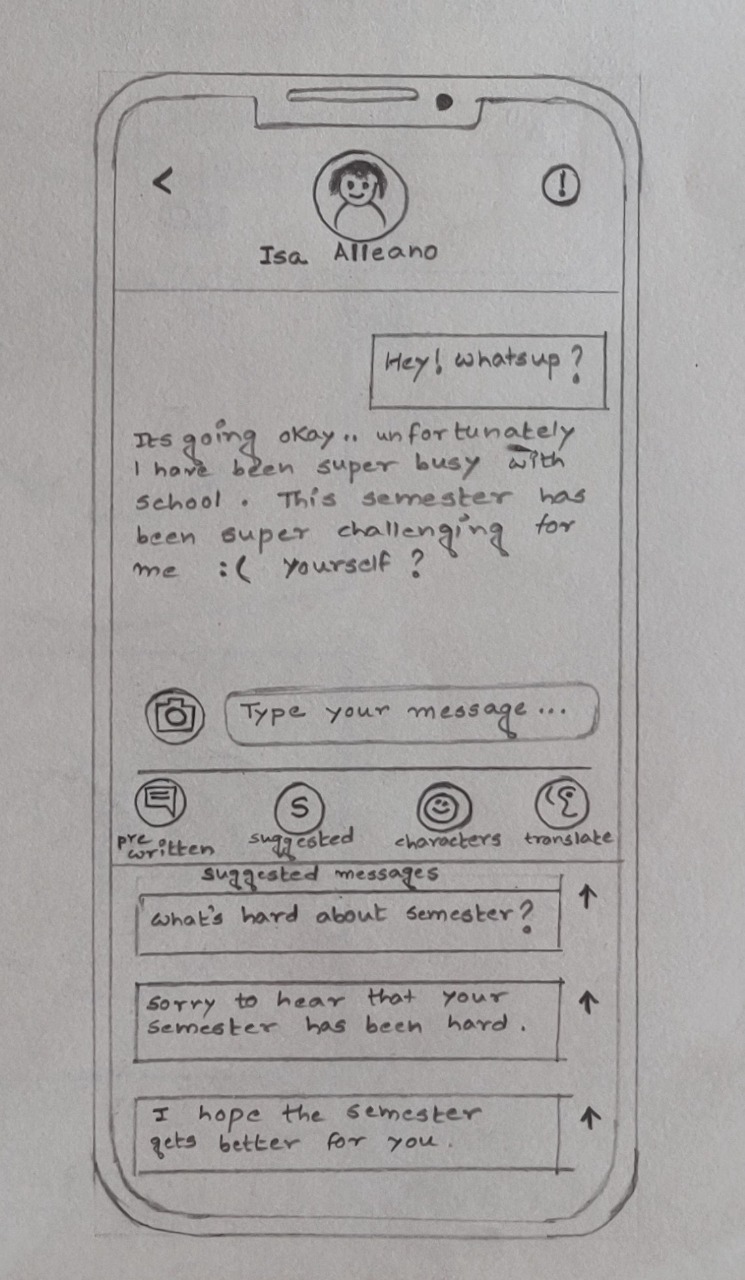 <
!
Isa Alleano
Hey! whatsup?
Its going okay.. unfortunately
I have been super busy with
school. This semester has
been super challenging for
me :( yourself?
Type your message...
S
pre written
suggested
characters
translate
suggested messages
what's hard about semester?
↑
sorry to hear that your
semester has been hard.
↑
I hope the semester
gets better for you.
↑